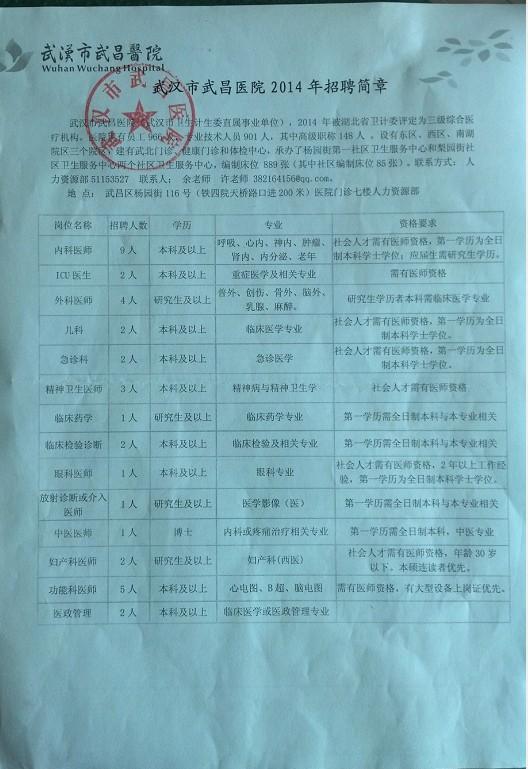 武漢市武昌醫院
Wuhan Wuchang Hospital
武汉市武昌医院 2014 年招聘简章
武汉市武昌医院
武汉市武昌医院（武汉市卫生计生委直属事业单位），2014 年被湖北省卫计委评定为三级综合医
疗机构。医院现有员工 966 人，专业技术人员 901 人，其中高级职称 148 人。设有东区、西区、南湖
院区三个院区，建有武北门诊、健康门诊和体检中心，承办了杨园街第一社区卫生服务中心和梨园街社
区卫生服务中心两个社区卫生服务中心，编制床位 889 张（其中社区编制床位 85 张）。联系方式： 人
力资源部 51153527 联系人： 余老师 许老师 382164156@qq.com。
地 点： 武昌区杨园街 116 号（铁四院天桥路口进 200 米）医院门诊七楼人力资源部
岗位名称 招聘人数 学历 专业 资格要求
内科医师 9 人 本科及以上 呼吸、心内、神内、肿瘤、 社会人才需有医师资格，第一学历为全日
肾内、内分泌、老年 制本科学士学位；应届生需研究生学历。
ICU 医生 2 人 本科及以上 重症医学及相关专业 需有医师资格
外科医师 4 人 研究生及以上 普外、创伤、骨外、脑外、 研究生学历者本科需临床医学专业
乳腺、麻醉。
儿科 2 人 本科及以上 临床医学专业 社会人才需有医师资格，第一学历为全日
制本科学士学位。
急诊科 2 人 本科及以上 急诊医学 社会人才需有医师资格，第一学历为全日
制本科学士学位。
精神卫生医师 3 人 本科及以上 精神病与精神卫生学 社会人才需有医师资格
临床药学 1 人 研究生及以上 临床药学专业 第一学历需全日制本科与本专业相关
临床检验诊断 2 人 本科及以上 临床检验及相关专业 第一学历需全日制本科与本专业相关
眼科医师 1 人 本科及以上 眼科专业 社会人才需有医师资格，2 年以上工作经
验，第一学历为全日制本科学士学位。
放射诊断或介入
医师 1 人 研究生及以上 医学影像（医） 第一学历需全日制本科与本专业相关
中医医师 1 人 博士 内科或疼痛治疗相关专业 第一学历需全日制本科，中医专业
妇产科医师 2 人 研究生及以上 妇产科(西医) 社会人才需有医师资格，年龄 30 岁
以下。本硕连读者优先。
功能科医师 5 人 本科及以上 心电图、B 超、脑电图 需有医师资格，有大型设备上岗证优先。
医政管理 2 人 本科及以上 临床医学或医政管理专业